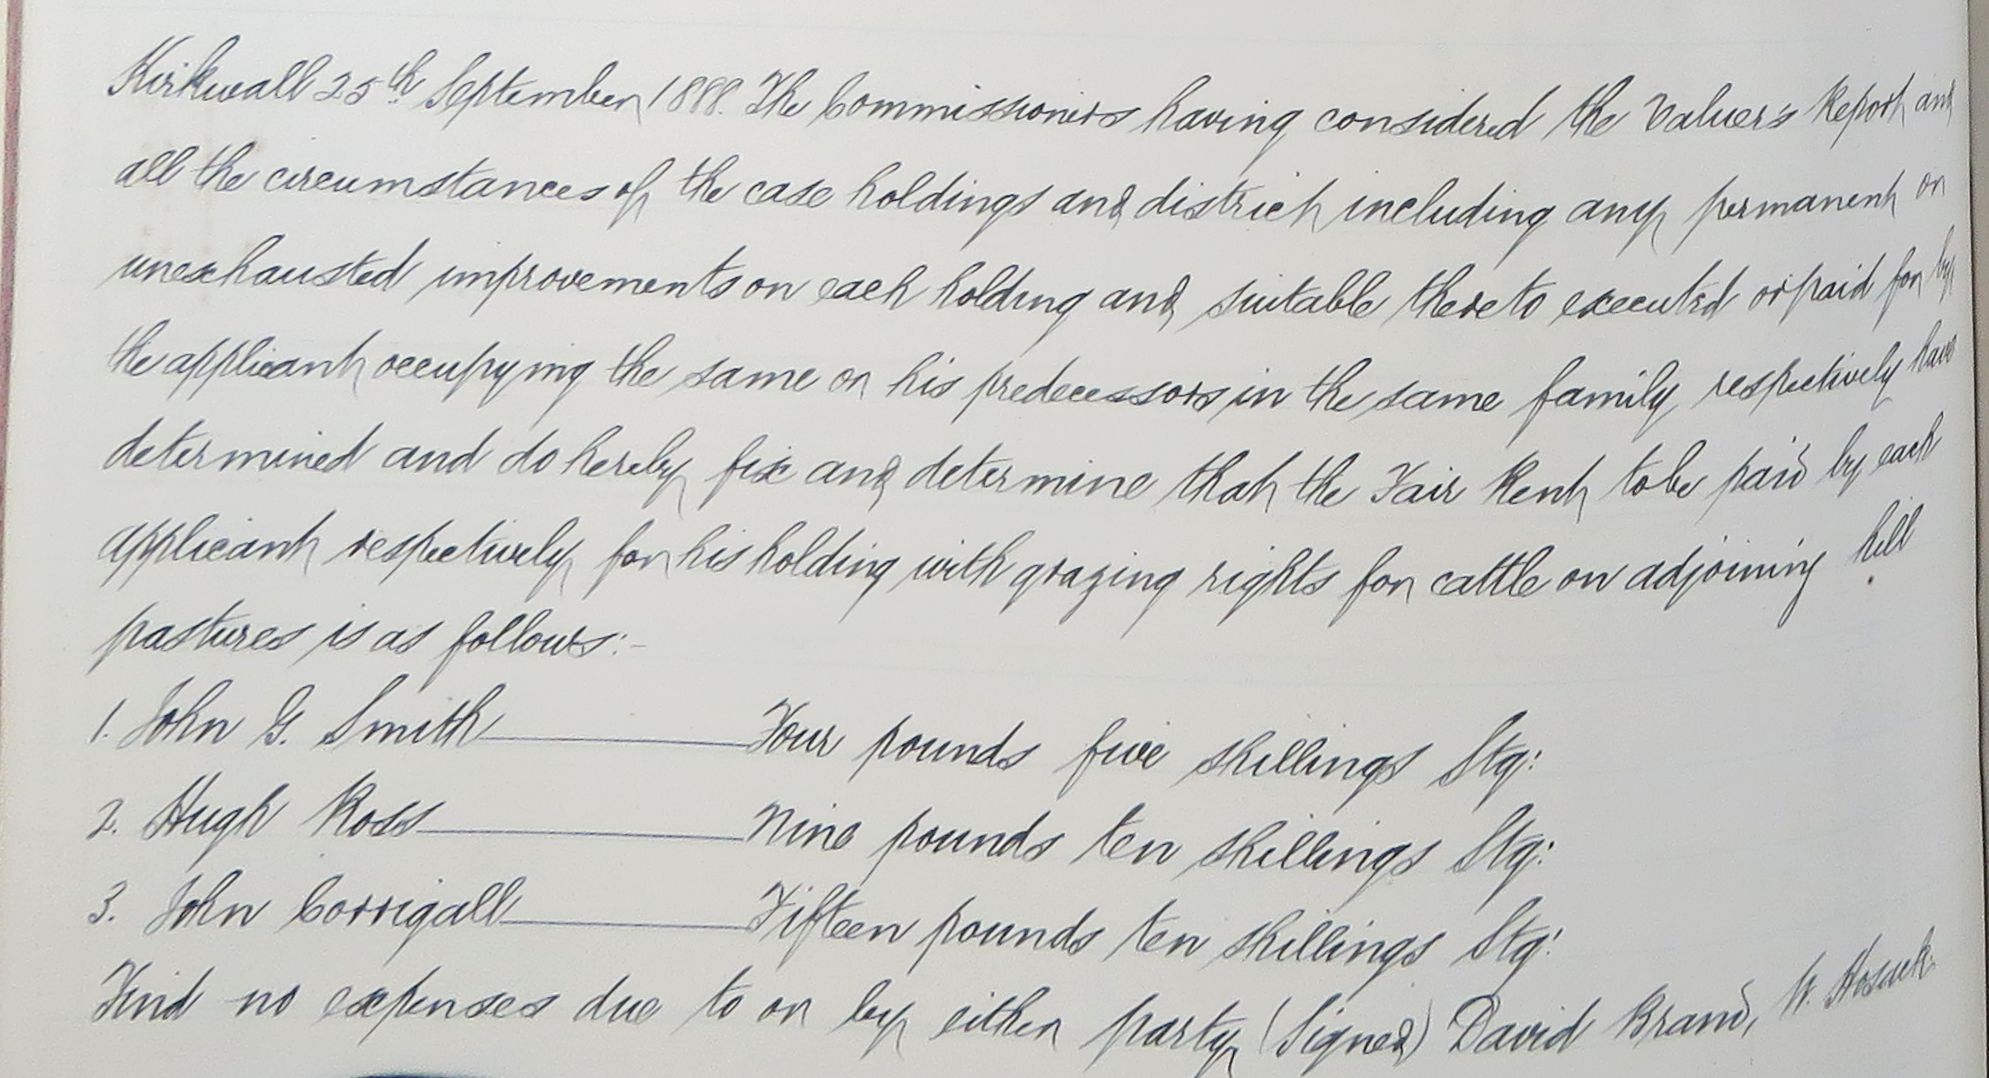 Kirkwall 25th September 1888. The Commissioners having considered the Valuer's Report and
all the circumstances of the case holdings and district including any permanent or
unexhausted improvements on each holding and suitable thereto executed or paid for by
the applicant occupying the same or his predecessors in the same family respectively have
determined and do hereby fix and determine that the Fair Rent to be paid by each
applicant respectively for his holding with grazing rights for cattle on adjoining hill
pastures is as follows:-
1. John G. Smith Four pounds five shillings Stg:
2. Hugh Ross Nine pounds ten shillings Stg:
3. John Corrigall Fifteen pounds ten shillings Stg:
Find no expenses due to or by either party (Signed) David Brand, W. Hosack